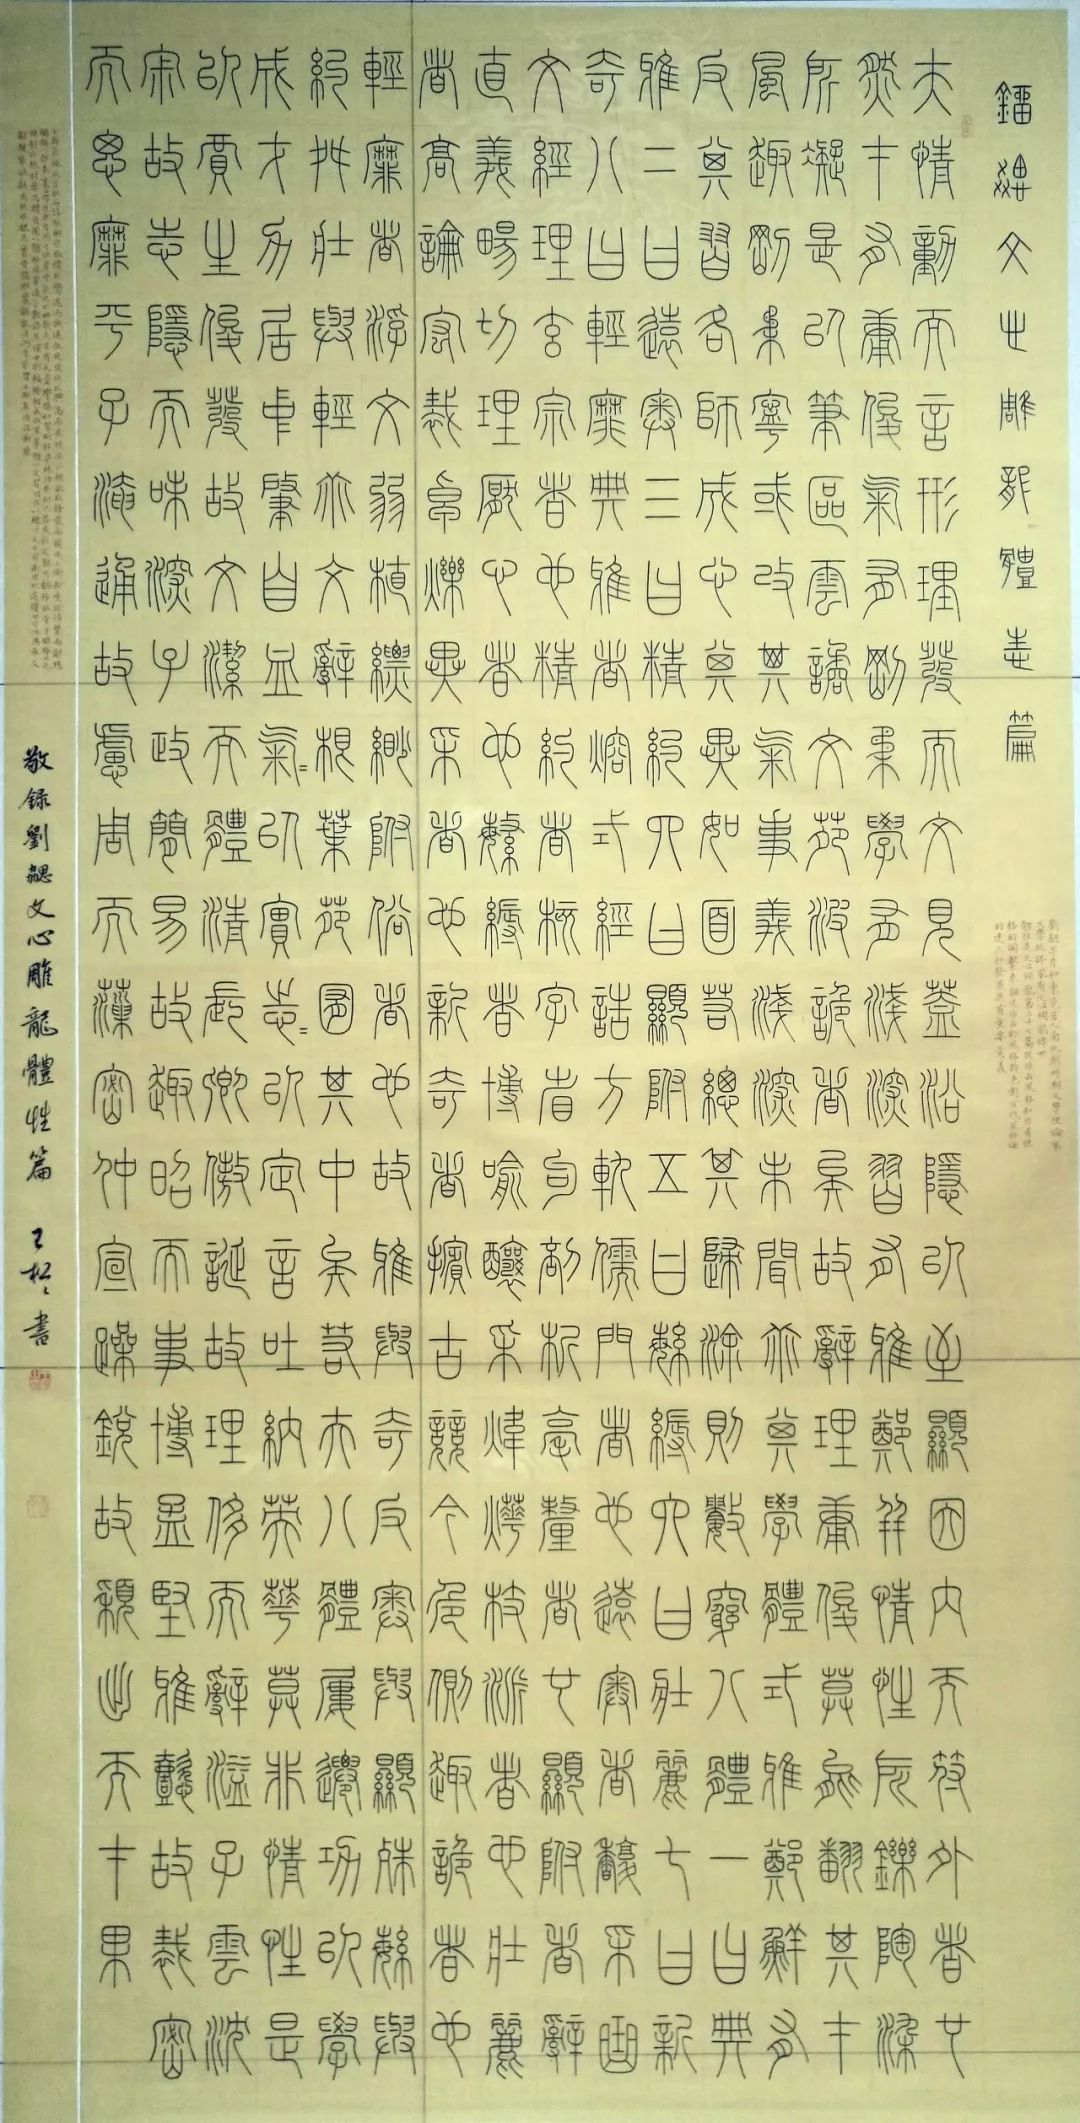 劉勰文心雕龍體志篇
夫情動而言形理發而文見蓋沿隱以至顯因內而符外者也
然才有庸俊氣有剛柔學有淺深習有雅鄭并情性所鑠陶染
所凝是以筆區雲譎文苑波詭者矣故辭理庸俊莫能翻其才
風趣剛柔寧或改其氣事義淺深未聞乖其學體式雅鄭鮮有
反其習各師成心其異如面若總其歸塗則數窮八體一曰典
雅二曰遠奧三曰精約四曰顯附五曰繁縟六曰壯麗七曰新
奇八曰輕靡典雅者熔式經誥方軌儒門者也遠奧者馥采曲
文經理玄宗者也精約者核字省句剖析毫釐者也顯附者辭
直義暢切理厭心者也繁縟者博喻釀采煒燁枝派者也壯麗
者高論宏裁卓爍異采者也新奇者擯古競今危側趣詭者也
輕靡者浮文弱植縹緲附俗者也故雅與奇反奧與顯殊繁與
約舛壯與輕乖文辭根葉苑囿其中矣若夫八體屢遷功以學
成才力居中肇自血氣=以實志=以定言吐納英華莫非情性是
以賈生俊發故文潔而體清長卿傲誕故理侈而辭溢子雲沈
寂故志隱而味深子政簡易故趣昭而事博孟堅雅懿故裁密
而思靡平子淹通故慮周而藻密仲宣躁銳故穎出而才果
敬錄劉勰文心雕龍體性篇 王松書